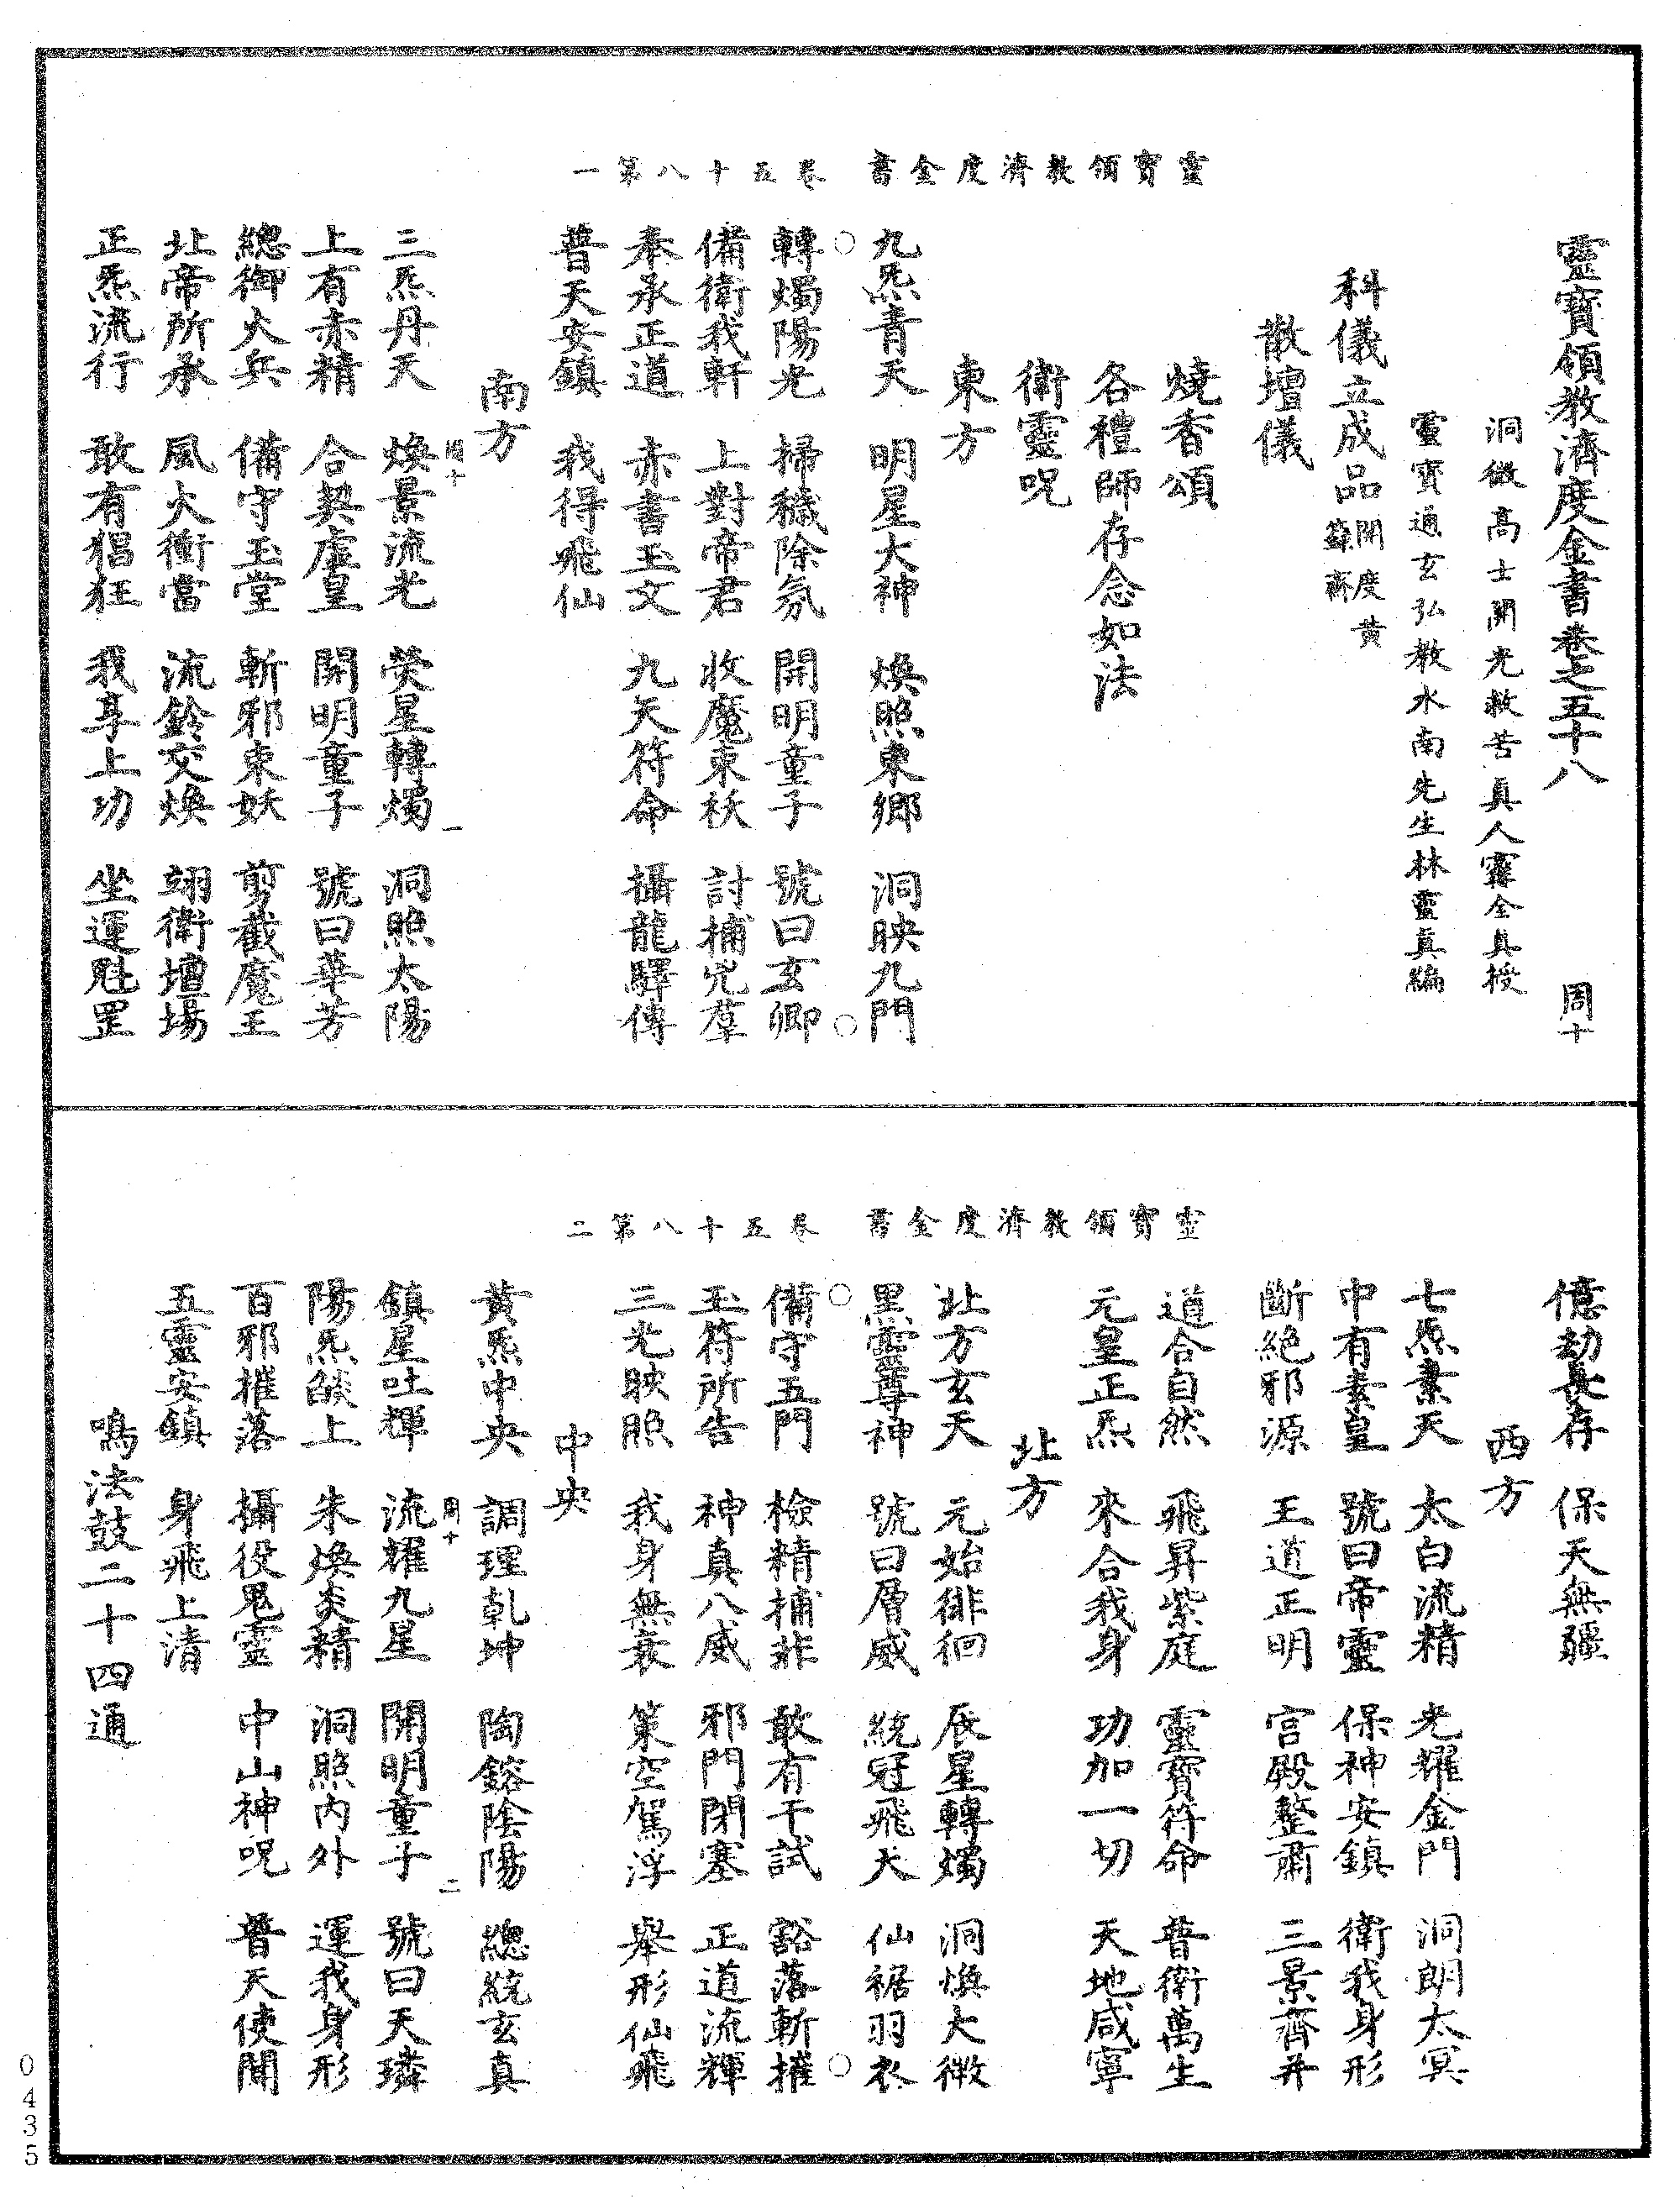 靈寶領教濟度金書 卷五十八第一
靈寶領教濟度金書卷之五十八 周十
洞微高士開光救苦真人甯全真授
靈寶通玄弘教水南先生林靈真編
科儀立成品 開度黃籙齋
散壇儀
燒香頌
各禮師存念如法
衛靈呪
東方
九炁青天 明星大神 煥照東鄉 洞映九門
轉燭陽光 掃穢除氛 開明童子 號曰玄卿
備衛我軒 上對帝君 收魔束祅 討捕兇羣
奉承正道 赤書玉文 九天符命 攝龍驛傳
普天安鎮 我得飛仙
南方
周十 一
三炁丹天 煥景流光 熒星轉燭 洞照太陽
上有赤精 合契虛皇 開明童子 號曰華芳
總御火兵 備守玉堂 斬邪束妖 剪截魔王
北帝所承 風火衝當 流鈴交煥 翊衛壇場
正炁流行 敢有猖狂 我享上功 坐運魁罡
靈寶領教濟度金書 卷五十八第二
億劫長存 保天無疆
西方
七炁素天 太白流精 光耀金門 洞朗太冥
中有素皇 號曰帝靈 保神安鎮 衛我身形
斷絕邪源 王道正明 宮殿整肅 三景齊并
道合自然 飛昇紫庭 靈寶符命 普衛萬生
元皇正炁 來合我身 功加一切 天地咸寧
北方
北方玄天 元始徘徊 辰星轉燭 洞煥太微
黑靈尊神 號曰層威 統冠飛天 仙裾羽衣
備守五門 檢精捕非 敢有干試 豁落斬摧
玉符所告 神真八威 邪門閉塞 正道流輝
三光映照 我身無衰 策空駕浮 舉形仙飛
中央
黃炁中央 調理乾坤 陶鎔陰陽 總統玄真
周十 二
鎮星吐輝 流耀九星 開明童子 號曰天璘
陽炁燄上 朱煥炎精 洞照內外 運我身形
百邪摧落 攝役鬼靈 中山神呪 普天使聞
五靈安鎮 身飛上清
鳴法鼓二十四通
0435